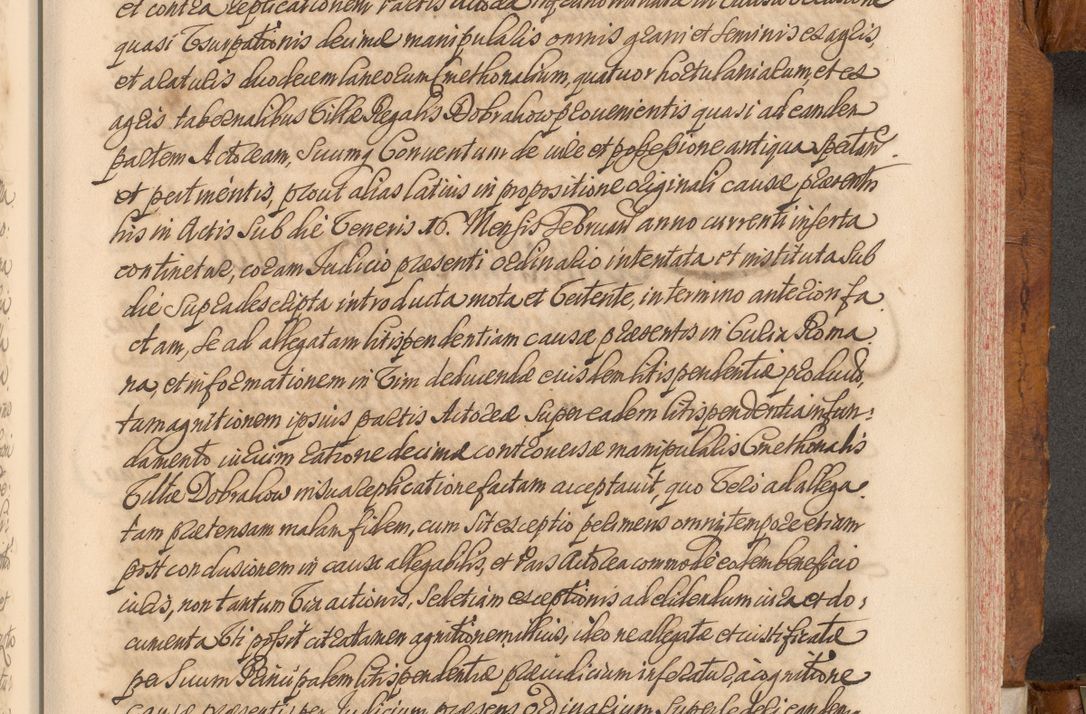 et contra replicationem Partis Actoreæ infranominatæ in causa ratione
quasi Usurpationis decimæ manipulalis omnis grani et seminis ex agris,
et araturis duodecem laneorum Cmethonalium, quatuor hortulaniarum, et ex
agris tabernalibus Villæ Regalis Dobrahow provenientis quasi ad eandem
partem Actoream, Suumq Conventum de iure et possessione antiqua spectan.
et pertinentis, prout alias latius in propositione originali causæ præsentis
his in Actis sub die Veneris 16. Mensis Februarii anno currenti inserta
continetur, coram Judicio præsenti ordinario intentata et instituta sub
die supradescripta introducta mota et vertente, in termino ante confa
ctam, se ad allegatam litispendentiam causæ præsentis in Curia Roma.
na, et informationem in Vim deducendæ eiusdem litispendentiæ produc.
tam agnitionem ipsius partis Actoreæ super eadem litispendentia in fun:
damento iurium ratione decimæ controversæ manipulalis Cmethonalis
Villæ Dobrahow in sua replicatione factam acceptavit, quo vero ad allega.
tam prætensam malam fidem, cum sit exceptio perimens omni tempore etiam
post conclusionem in causa allegabilis, et Pars Actorea commode eodem beneficio
iuris, non tantum Vir actionis, sed etiam exceptionis ad elidendum iura et do:
cumenta Uti possit citra tamen agnitionem illius, ideo ne allegatæ et iustificatæ
per Suum Principalem litispendentiæ præiudicium inferatur, a cognitione
causæ præsentis per Judicium præsens Ordinarium superledeli eandem